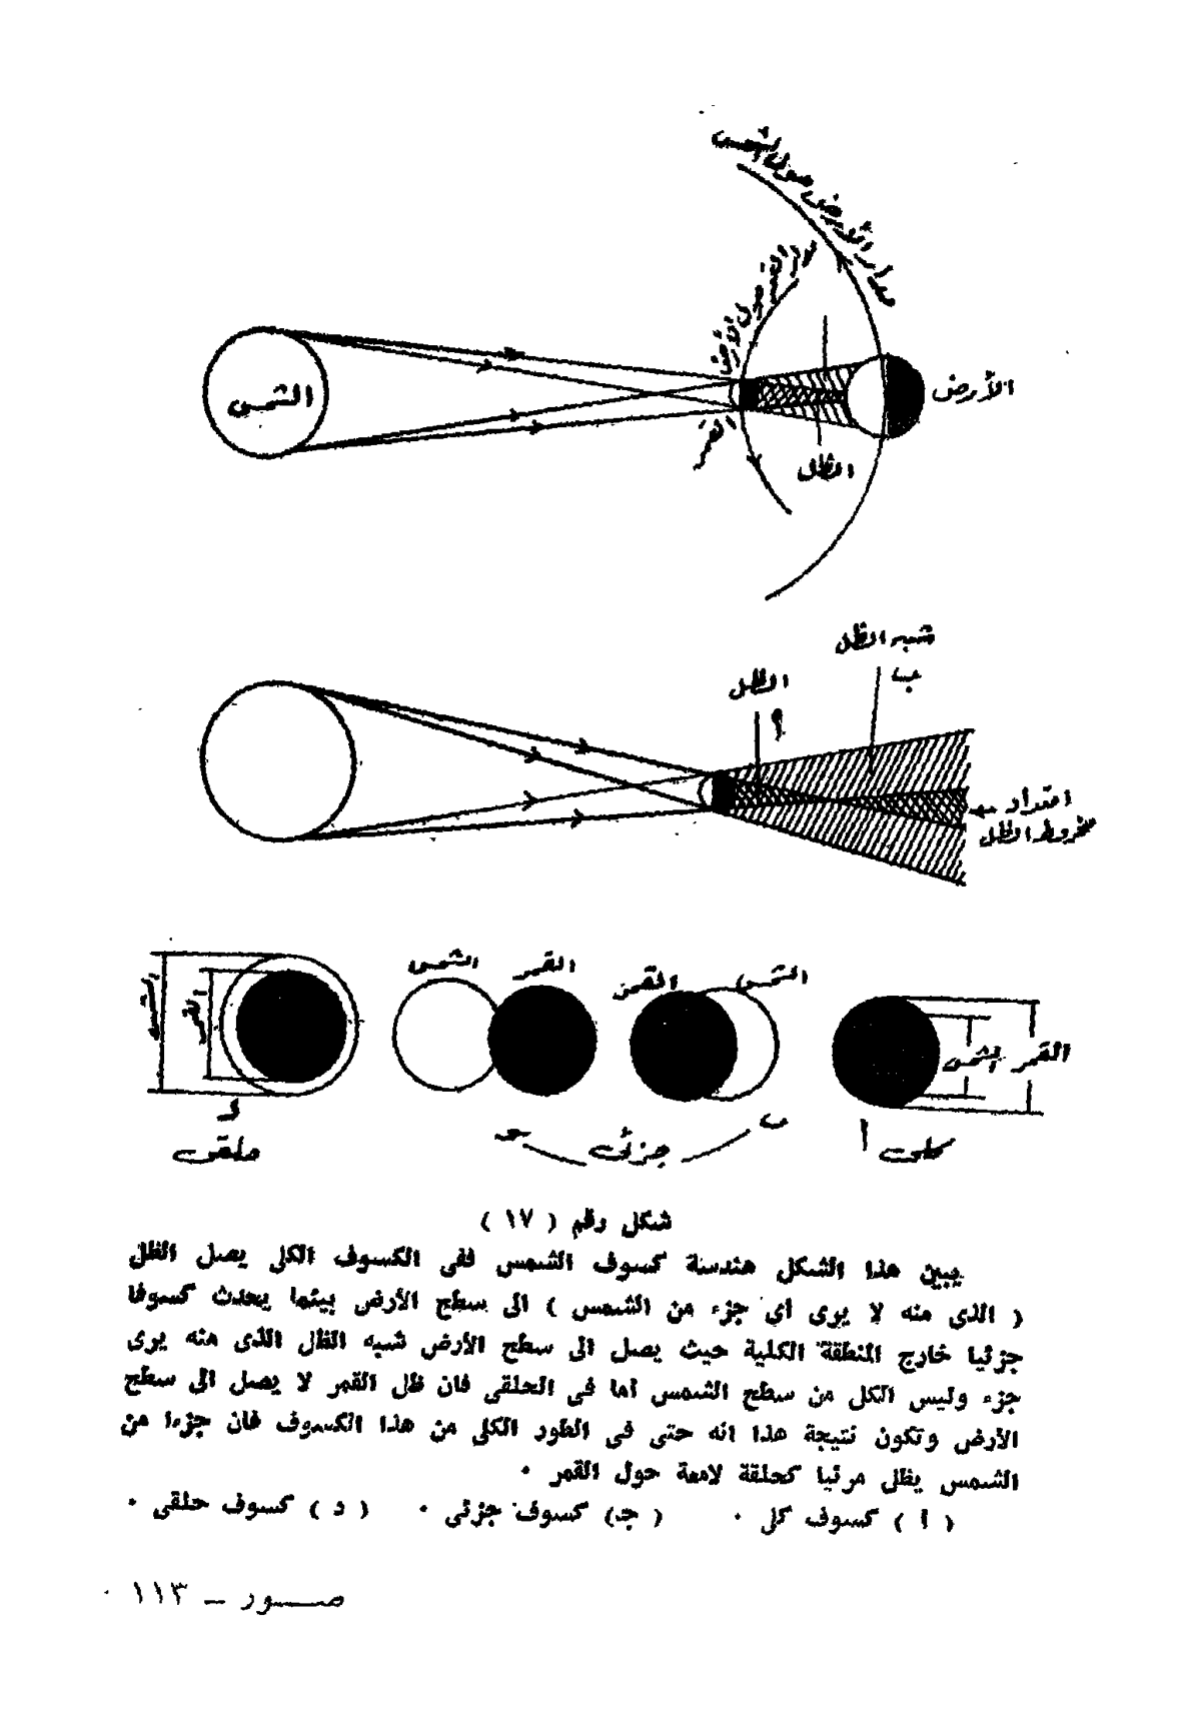 مدار الأرض حول الشمس
مدار القمر حول الأرض
الشمس
الأرض
القمر
الظل
شبه الظل
ب
الظل
أ
امتداد
مخروط الظل
الشمس
القمر
الشمس
القمر
القمر
الشمس
القمر
الشمس
د
حلقى
جـ
جزئى
ب
أ
كلى
شكل رقم ( ١٧ )
يبين هذا الشكل هندسة كسوف الشمس ففى الكسوف الكلى يصل الظل
( الذى منه لا يرى أى جزء من الشمس ) الى سطح الأرض بينما يحدث كسوفا
جزئيا خارج المنطقة الكلية حيث يصل الى سطح الأرض شبه الظل الذى منه يرى
جزء وليس الكل من سطح الشمس أما فى الحلقى فان ظل القمر لا يصل الى سطح
الأرض وتكون نتيجة هذا انه حتى فى الطور الكلى من هذا الكسوف فان جزءا من
الشمس يظل مرئيا كحلقة لامعة حول القمر ٠
( أ ) كسوف كلى ٠ ( جـ) كسوف جزئى ٠ ( د ) كسوف حلقى ٠
صـــور ــ ١١٣ ٠